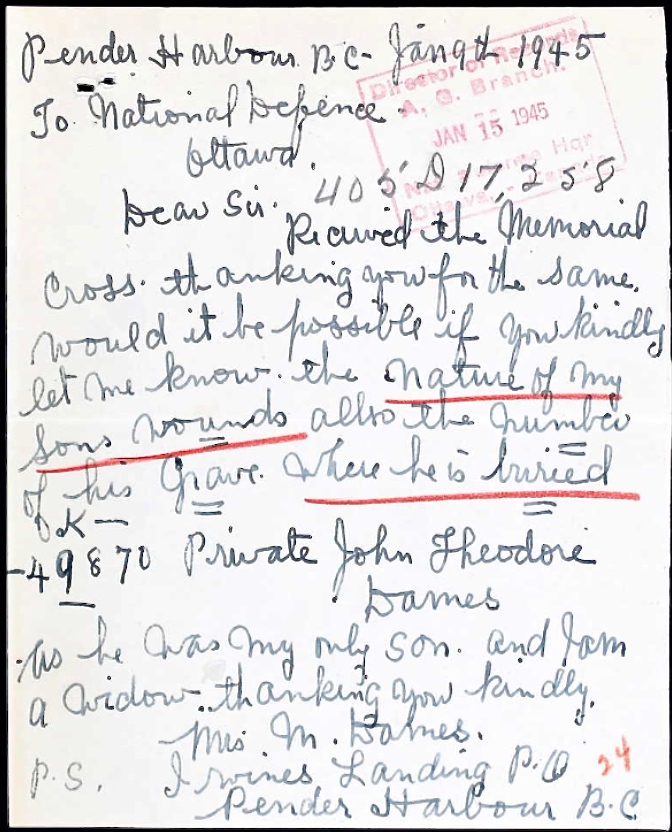 Pender Harbour B.C- Jan 9th 1945
Director of Records
A. G. Branch.
JAN 15 1945
To National Defence.
Ottawa.
405 D 17,258
Dear Sir.
Recieved the Memorial
Cross. thanking you for the same.
would it be possible if you kindly
let me know. the nature of my
sons wounds allso the number
of his Grave. Where he is buried
K-
49870 Private John Theodore
Dames
as he was my only son. and I am
a widow. thanking you kindly.
Mrs M. Dames.
P.S. Irvines Landing P.O
24
Pender Harbour B.C.